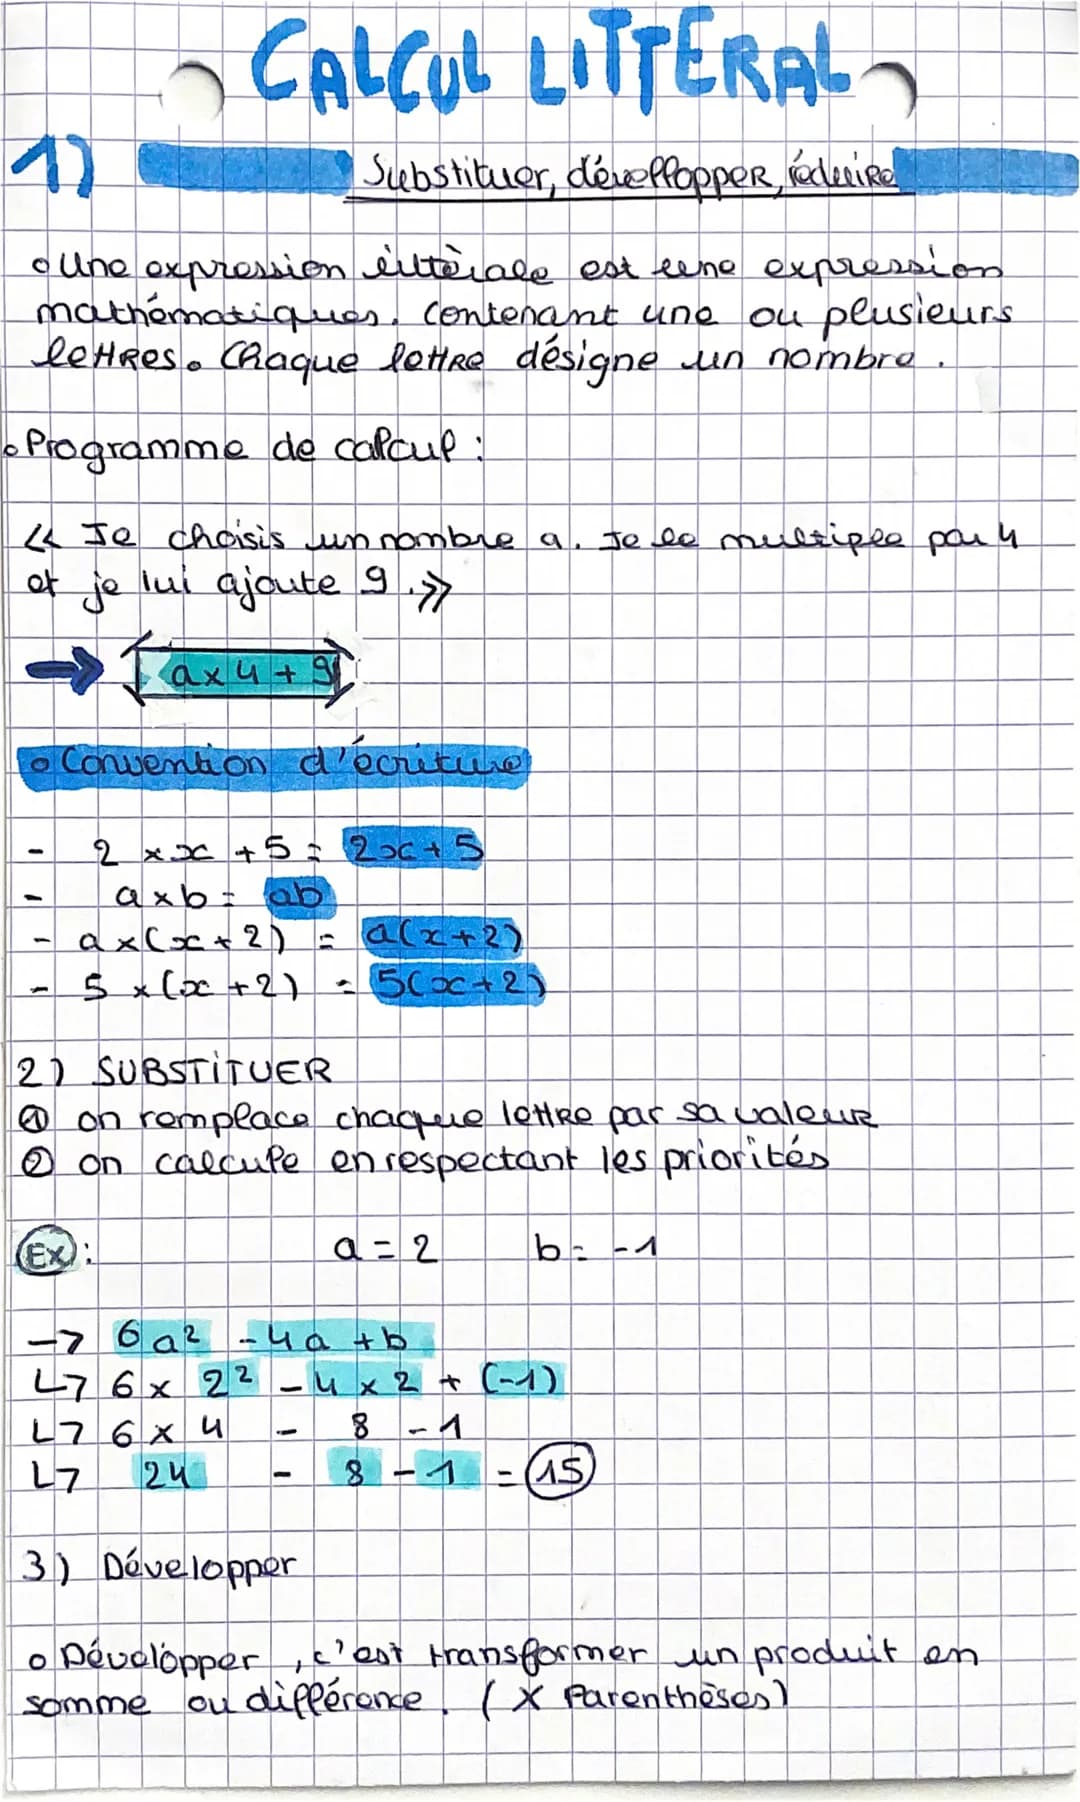 CALCUL LITTERAL
1) Substituer, développer, réduire
• Une expression littèrale est une expression
mathématiques. Contenant une ou plusieurs
lettres. Chaque lettre désigne un nombre.
• Programme de calcul :
<< Je choisis un nombre a. Je le multiplie par 4
et je lui ajoute 9.>>
→ a x 4 + 9
• Convention d'écriture
- 2 × x + 5 = 2x + 5
- a x b = ab
- a x (x + 2) = a(x + 2)
- 5 x (x + 2) = 5(x + 2)
2) SUBSTITUER
① on remplace chaque lettre par sa valeur
② on calcule en respectant les priorités
Ex : a = 2 b = -1
→ 6a² - 4a + b
↳ 6 x 2² - 4 x 2 + (-1)
↳ 6 x 4 - 8 - 1
↳ 24 - 8 - 1 = 15
3) Développer
• Développer, c'est transformer un produit en
somme ou différence. (X Parenthèses)